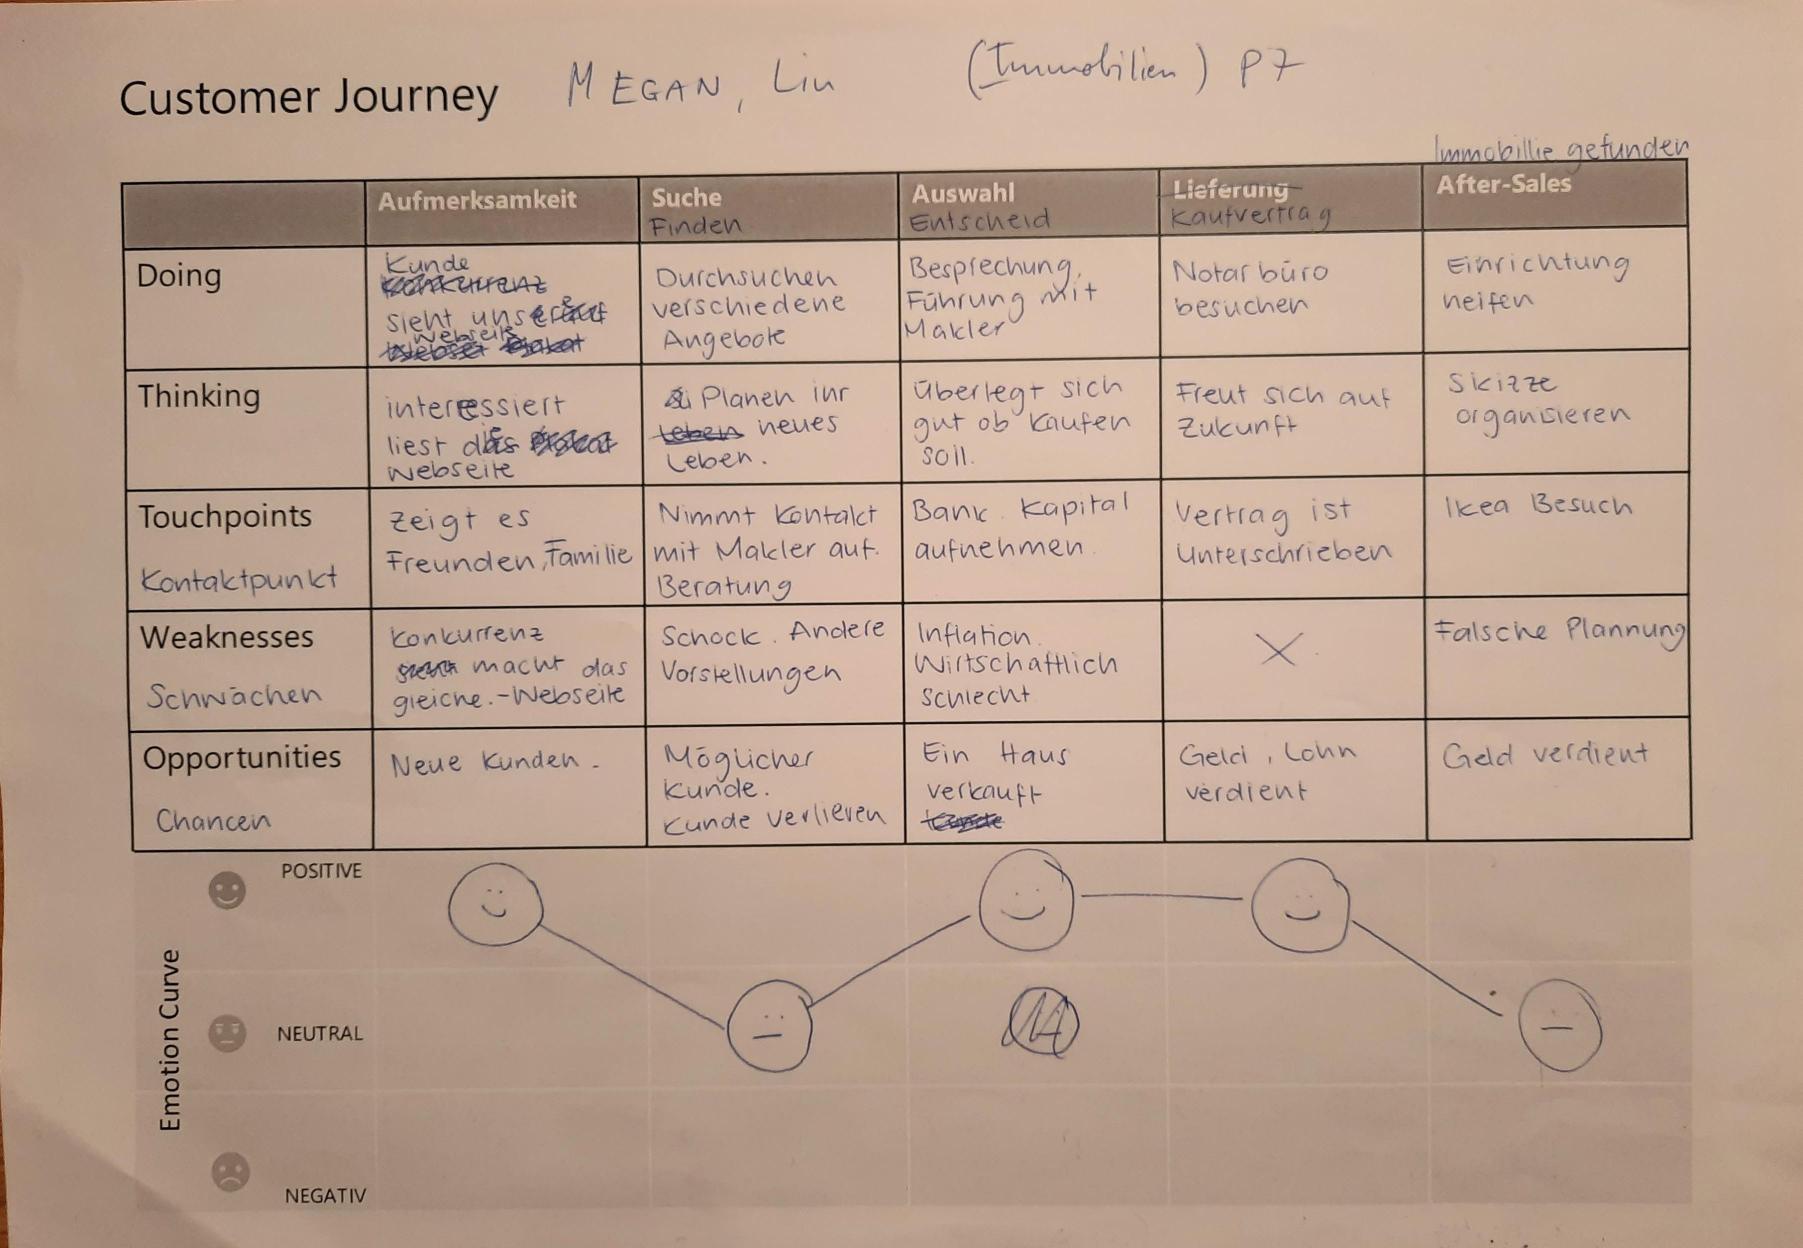 Customer Journey MEGAN, Liu (Immobilien) P7
Immobillie gefunden
Aufmerksamkeit
Suche
Finden
Auswahl
Entscheid
Lieferung
Kaufvertrag
After-Sales
Doing
Kunde
Konkurrenz
sieht unsere
Webseite
Durchsuchen
verschiedene
Angebote
Besprechung,
Führung mit
Makler
Notarbüro
besuchen
Einrichtung
helfen
Thinking
interessiert
liest die
Webseite
Planen ihr
Leben neues
Leben.
Überlegt sich
gut ob kaufen
soll.
Freut sich auf
Zukunft
Skizze
organisieren
Touchpoints
Kontaktpunkt
Zeigt es
Freunden, Familie
Nimmt Kontakt
mit Makler auf.
Beratung
Bank. Kapital
aufnehmen.
Vertrag ist
Unterschrieben
Ikea Besuch
Weaknesses
Schwächen
Konkurrenz
macht das
gleiche.-Webseite
Schock. Andere
Vorstellungen
Inflation.
Wirtschaftlich
schlecht
X
Falsche Plannung
Opportunities
Chancen
Neue Kunden.
Möglicher
Kunde.
Kunde verlieren
Ein Haus
verkauft
Kunde
Geld, Lohn
verdient
Geld verdient
Emotion Curve
POSITIVE
NEUTRAL
NEGATIV